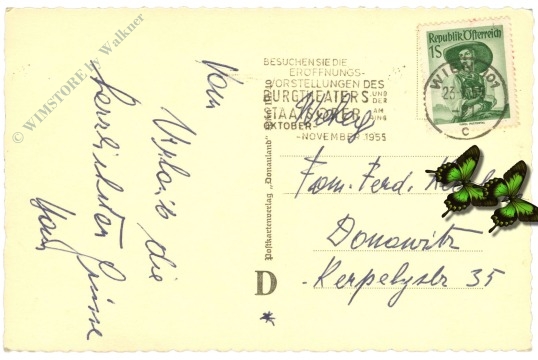 © WIMSTORE E. Walkner
Vom
Urlaub die
herzlichsten Grüsse
BESUCHEN SIE DIE
ERÖFFNUNGS-
VORSTELLUNGEN DES
BURGTHEATERS UND DER
STAATSOPER AM RING
OKTOBER
-NOVEMBER 1955
Republik Österreich
1S
WIEN 101
C
Postkartenverlag „Donauland"
D
*
Fam. Ferd.
Donawitz
Kerpelystr 35